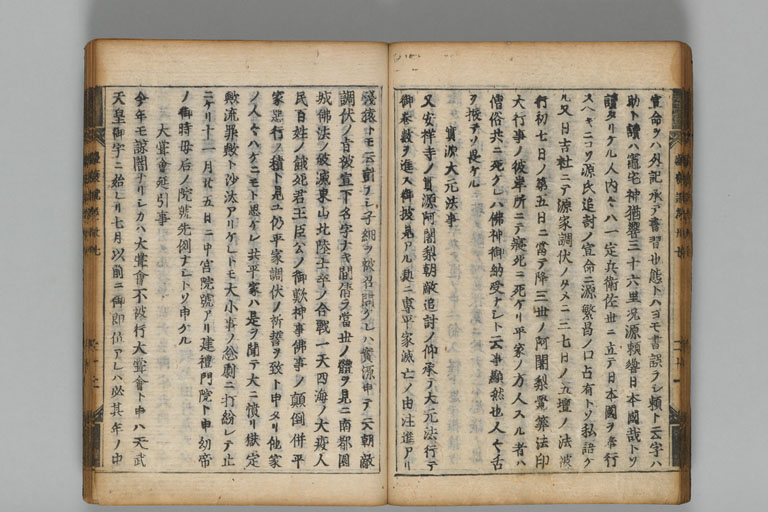 宣命ヲハ外記承テ書習也態トハヨモ書誤ラシ頼ト云字ハ
助ト讀ハ竈宅神猶響三十六里况源頼響日本國哉トソ
讀タリケル人内々ハ一定兵衛佐世ニ立テ日本國ヲ奉行
スヘキニコソ源氏追討ノ宣命ニ源繁昌ノ口占有トソ私語ケ
ル又日吉社ニテ源家調伏ノタメニ三七日ノ五壇ノ法被
行初七日ノ第五日ニ當テ降三世ノ阿闍梨覺算法印
大行事ノ彼岸所ニテ寢死ニ死ケリ平家ノ方人スル者ハ
僧俗共ニ死ケレハ佛神御納受ナシト云事顯然也人々舌
ヲ振テソ恐ケル
實源大元法事
又安祥寺ノ實源阿闍梨朝敵追討ノ仰承テ大元法行テ
御卷數ヲ進ス御披見アルニ専平家滅亡ノ由注進アリ
淺猿トモ云計ナシ子細ヲ被召問ケレハ實源申テ云朝敵
調伏ノ旨被宣下名字ナキ間倩ラ當世ノ體ヲ見ニ南都園
城佛法ノ破滅東山北陸士卒ノ合戰一天四海ノ大疫人
民百姓ノ餓死君王臣公ノ御歎神事佛事ノ顛倒併平
家惡行ノ積ト見ユ仍平家調伏ノ祈誓ヲ致ト申タリ他家
ノ人々ハケニモト思ケレ共平家ハ是ヲ聞テ大ニ憤リ獄定
歟流罪歟ト沙汰アリケレトモ大小事ノ怱劇ニ打紛レテ止
ニケリ十一月廿五日ニ中宮院號アリ建禮門院ト申幼帝
ノ御時母后ノ院號先例ナシトソ申ケル
大甞會延引事
今年モ諒闇ナリシカハ大甞會不被行大甞會ト申ハ天武
天皇御宇ニ始レリ七月以前ニ御即位アレハ必其年ノ中